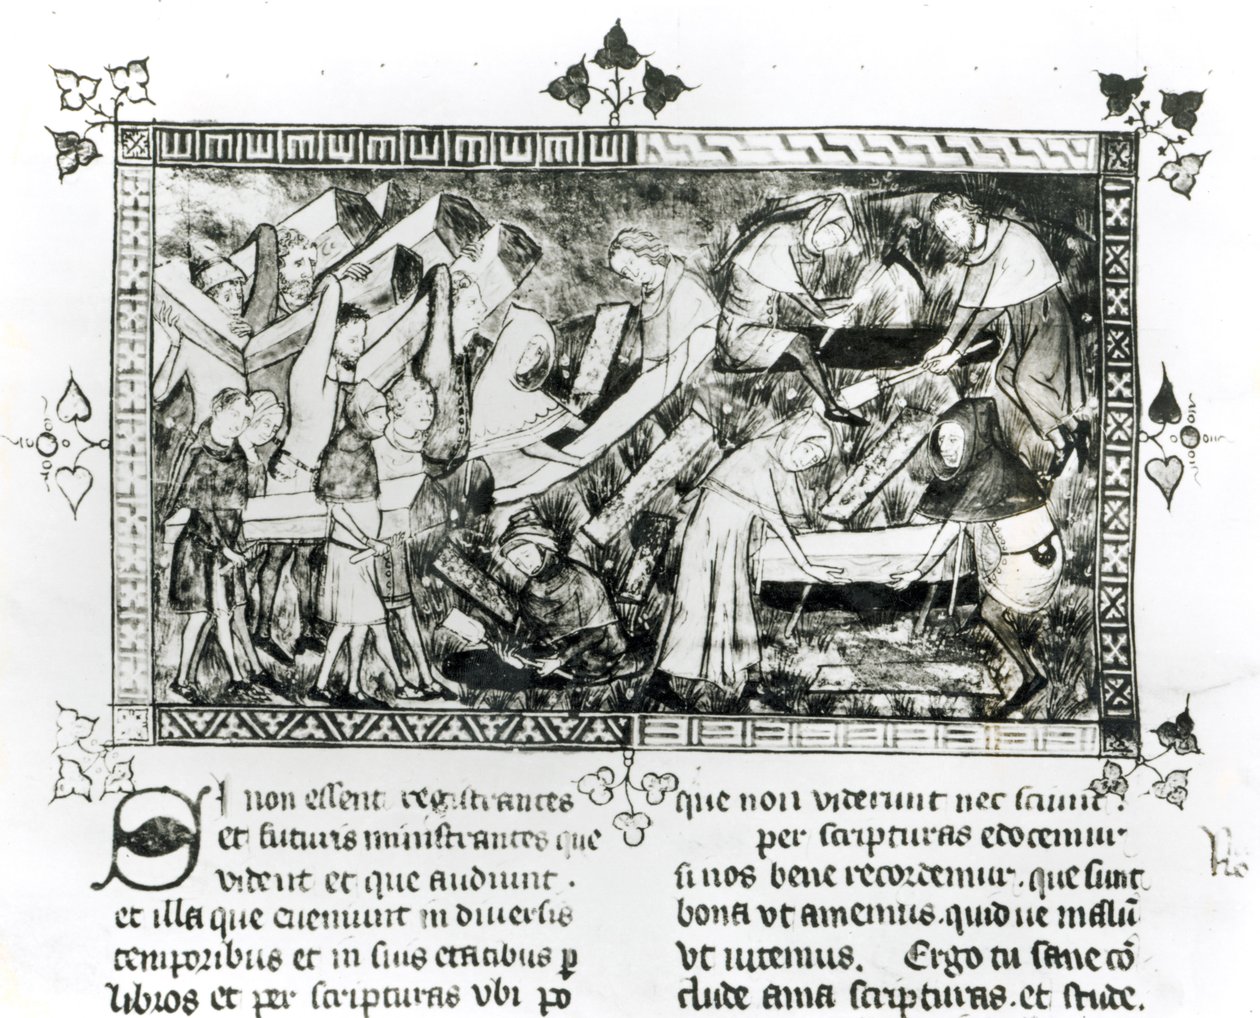 Si non essent registrantes
et futuris ministrantes que
vident et que audiunt .
et illa que eueniunt in diuersis
temporibus et in suis etatibus ꝑ
libros et per scripturas vbi po
que non viderunt nec sciunt :
per scripturas edocemur
si nos bene recordemur . que sunt
bona vt amemus . quid ue malū
vt uitemus . Ergo tu sane cō
clude ama scripturas . et stude .